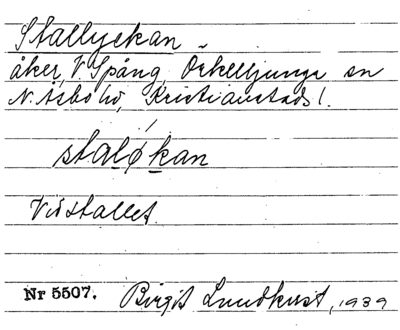 Stallyckan
åker, V. Spång, Örkelljunga sn
N. Åsbo hd, Kristianstads l.
staløkan
Vid stallet.
Nr 5507. Birgit Lundkvist, 1939